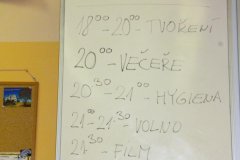 18⁰⁰-20⁰⁰-TVOŘENÍ
20⁰⁰-VEČEŘE
20³⁰-21⁰⁰-HYGIENA
21⁰⁰-21³⁰-VOLNO
21³⁰-FILM